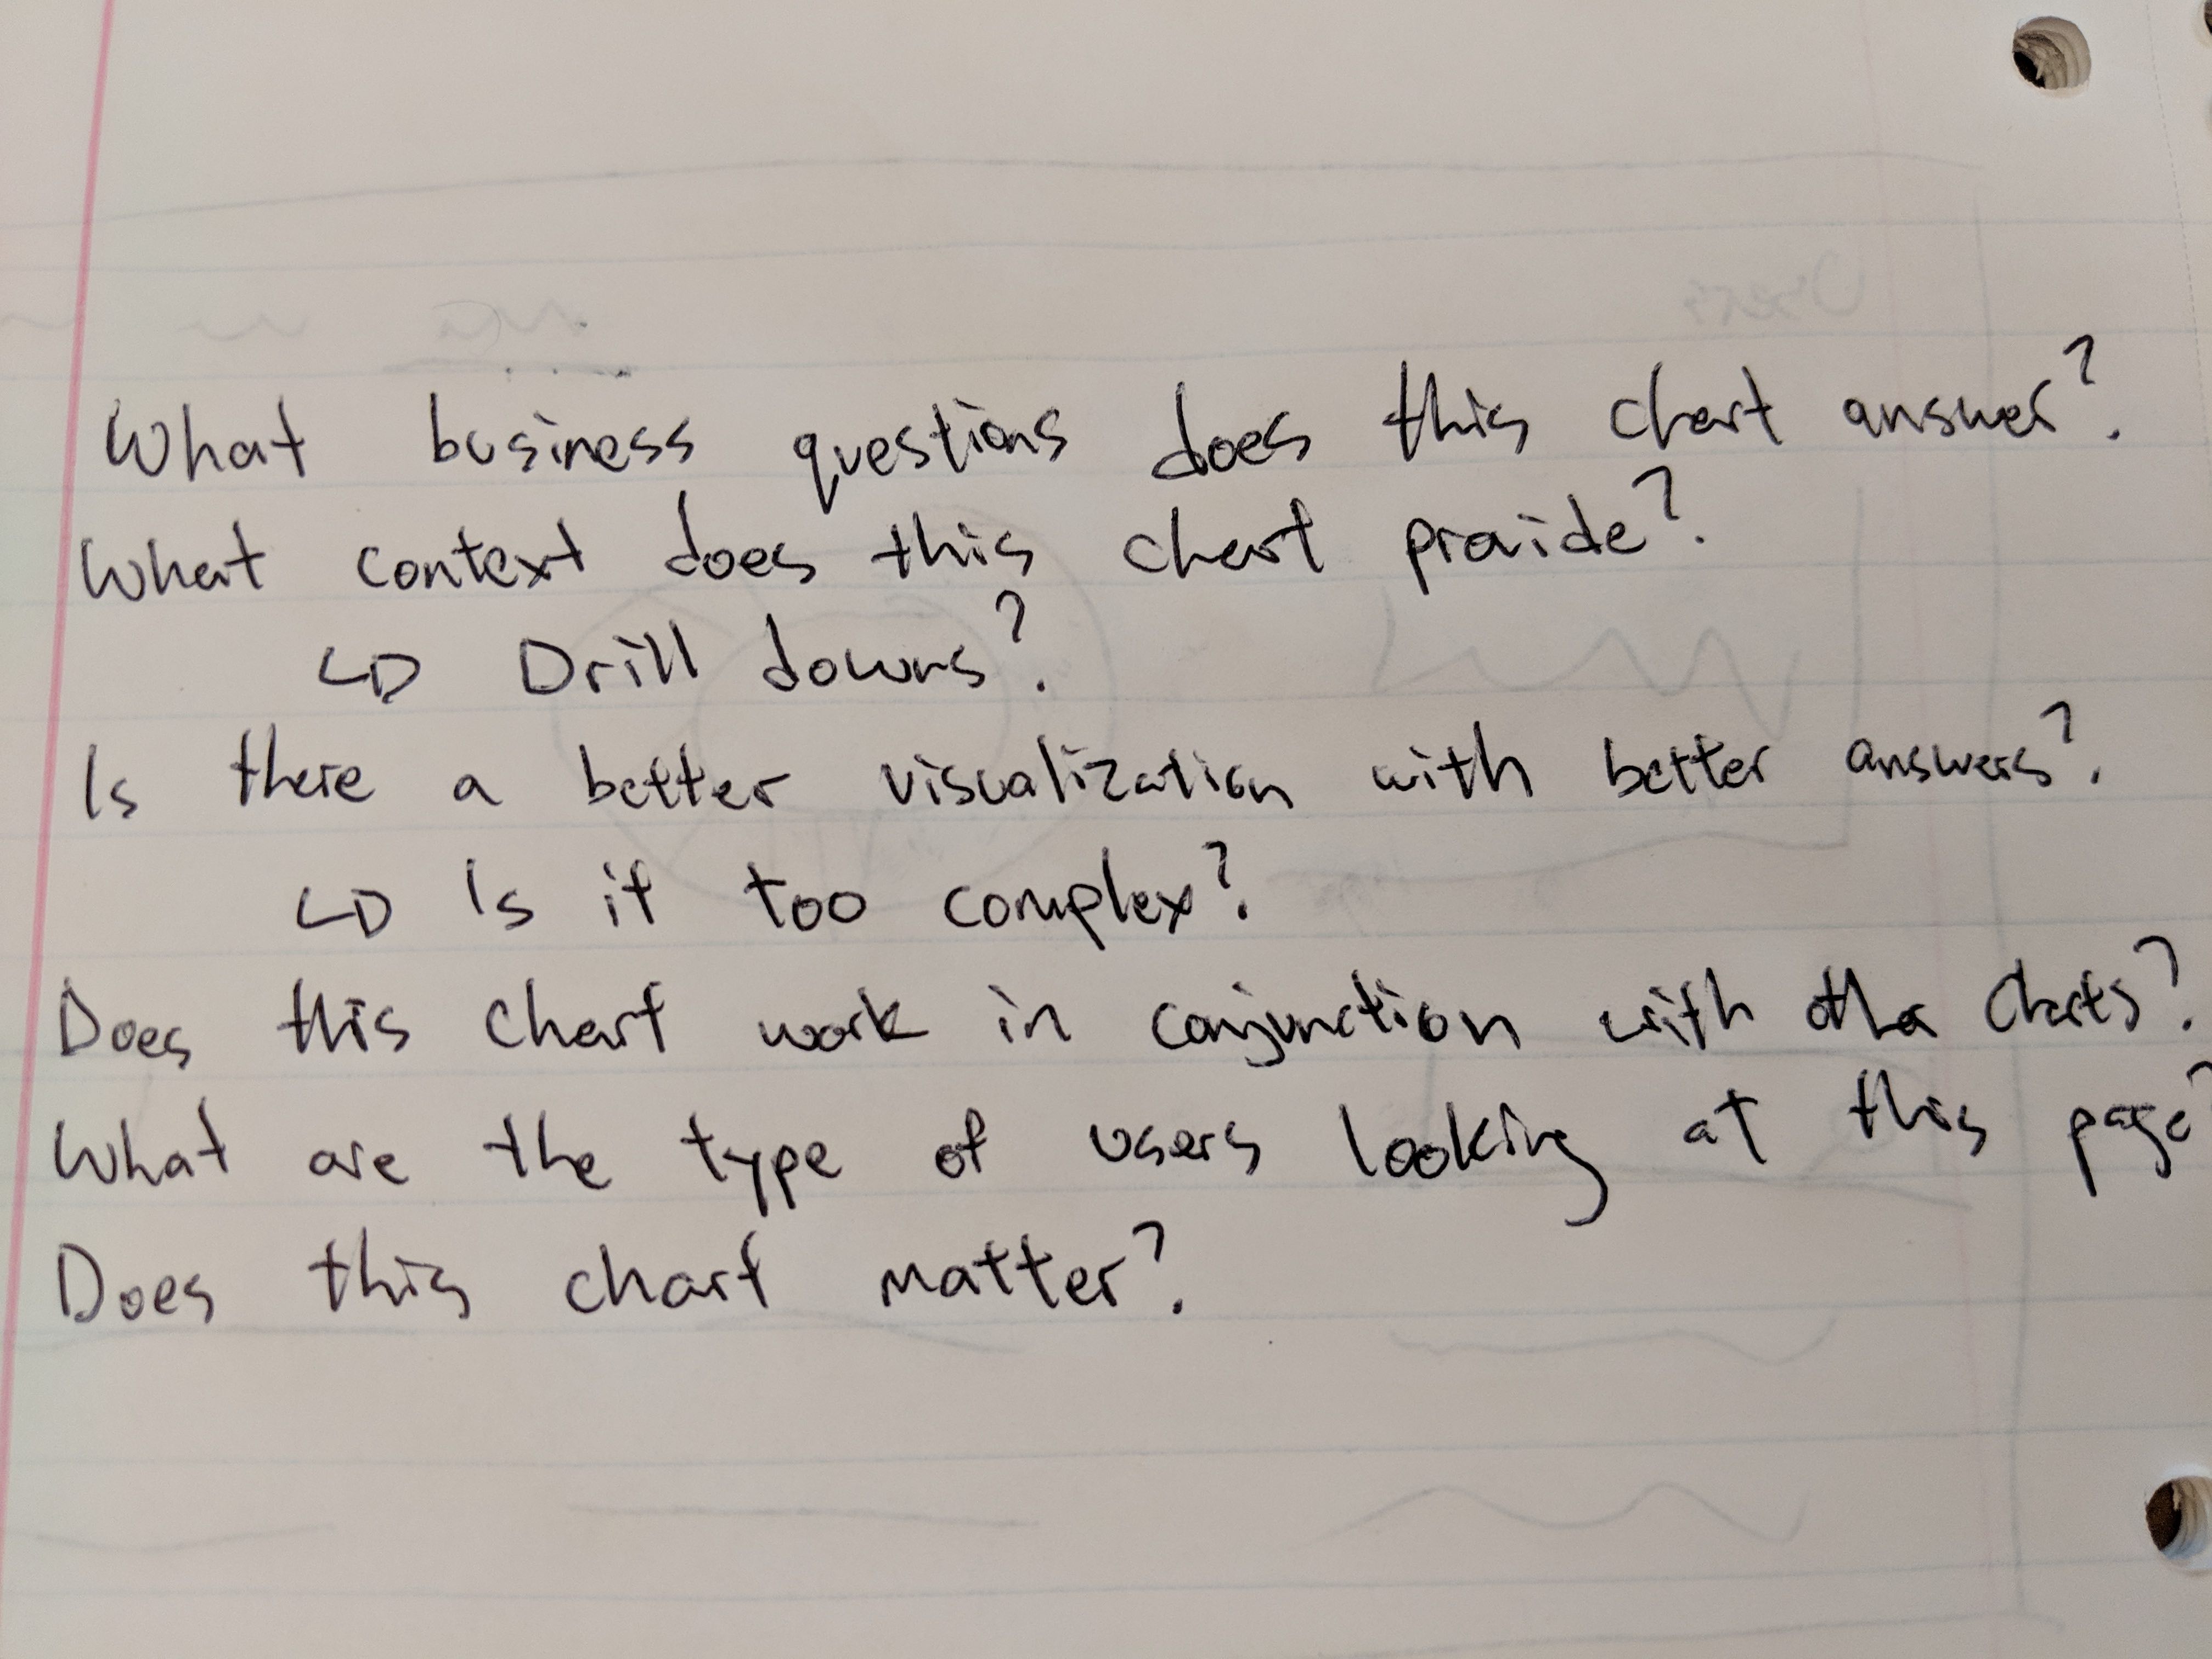 What business questions does this chart answer?
What context does this chart provide?
↳ Drill downs?
Is there a better visualization with better answers?
↳ Is it too complex?
Does this chart work in conjunction with other charts?
What are the type of users looking at this page?
Does this chart matter?